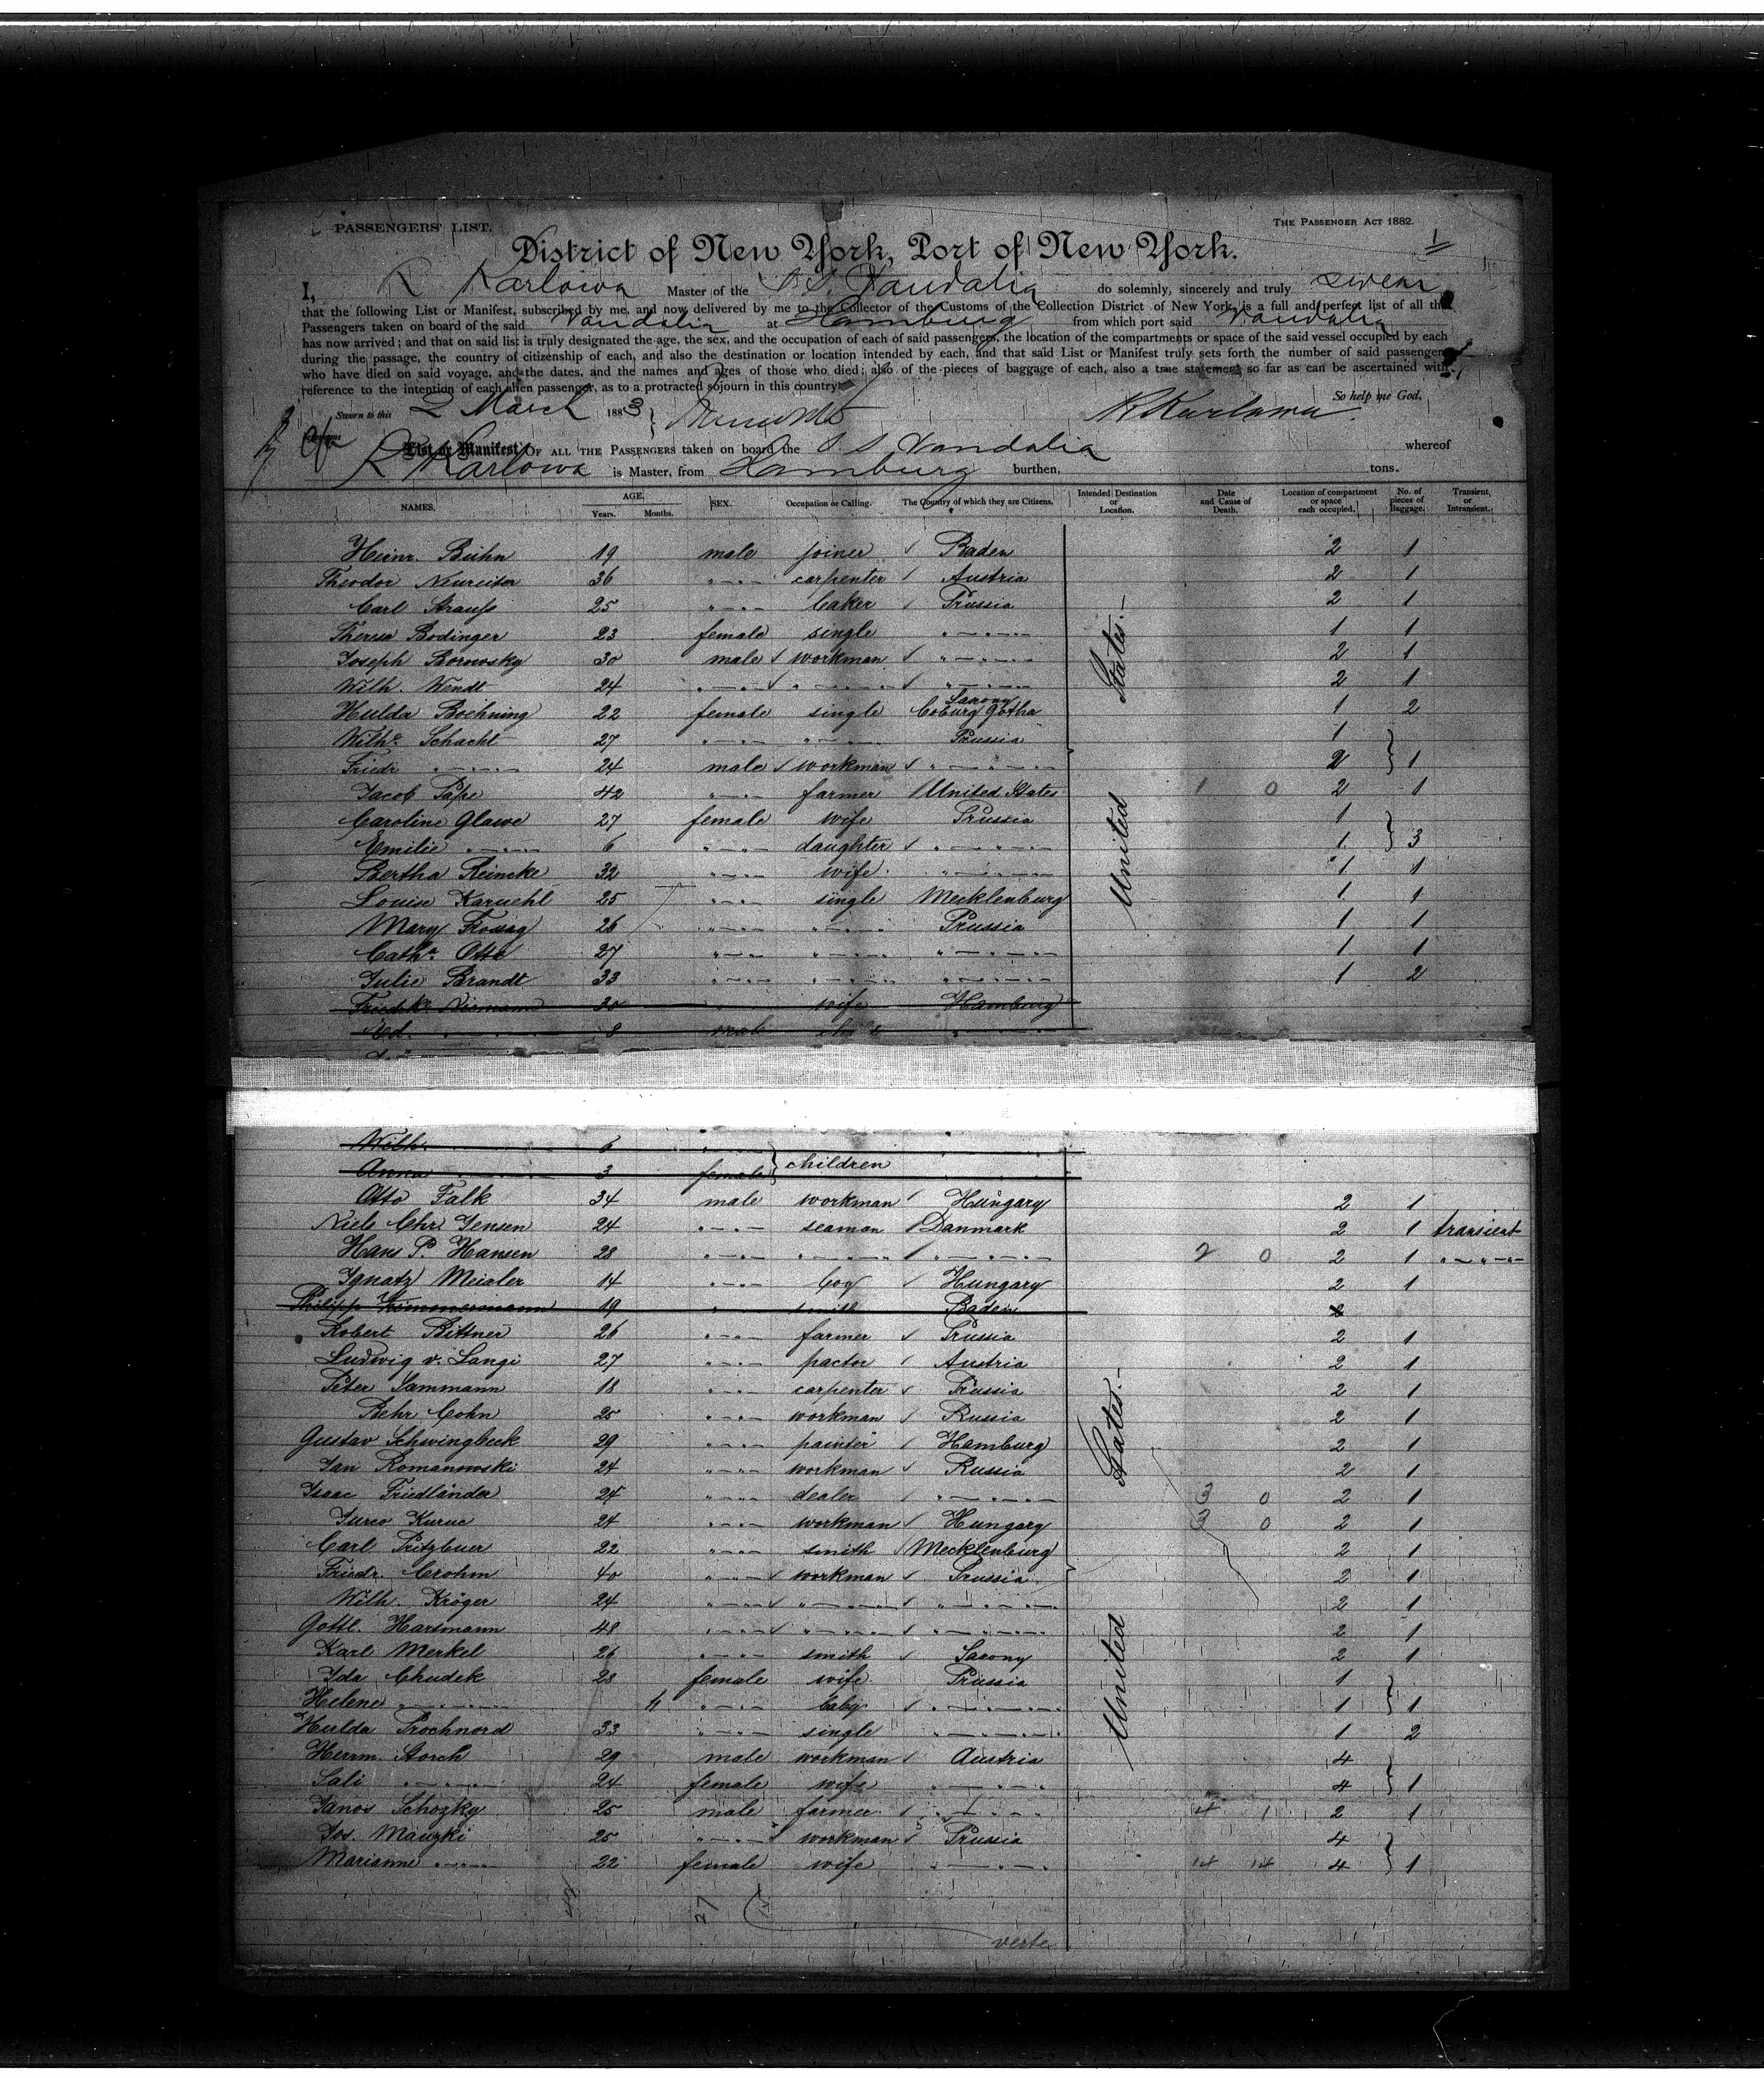 PASSENGERS' LIST.
THE PASSENGER ACT 1882.
1
District of New York, Port of New York.
I, R Karlowa Master of the S. S. Vandalia do solemnly, sincerely and truly swear
that the following List or Manifest, subscribed by me, and now delivered by me to the Collector of the Customs of the Collection District of New York, is a full and perfect list of all the
Passengers taken on board of the said Vandalia at Hamburg from which port said Vandalia
has now arrived; and that on said list is truly designated the age, the sex, and the occupation of each of said passengers, the location of the compartments or space of the said vessel occupied by each
during the passage, the country of citizenship of each, and also the destination or location intended by each, and that said List or Manifest truly sets forth the number of said passengers
who have died on said voyage, and the dates, and the names and ages of those who died; also of the pieces of baggage of each, also a true statement so far as can be ascertained with
reference to the intention of each alien passenger, as to a protracted sojourn in this country.
So help me God.
Sworn to this 2 March 1883 R Karlowa
List or Manifest OF ALL THE PASSENGERS taken on board the S. S. Vandalia whereof
R Karlowa is Master, from Hamburg burthen, tons.
NAMES. AGE. Years. Months. SEX. Occupation or Calling. The Country of which they are Citizens. Intended Destination or Location. Date and Cause of Death. Location of compartment or space each occupied. No. of pieces of Baggage. Transient, or Intransient.
Heinr. Bühn 19 male joiner Baden 2 1
Theodor Neureiter 36 " carpenter Austria 2 1
Carl Strauß 25 " baker Prussia 2 1
Therese Bodinger 23 female single " 1 1
Joseph Borowsky 30 male workman " 2 1
Wilh. Wendt 24 " " " 2 1
Hulda Bochning 22 female single Saxony Coburg Gotha 1 2
Wilhe. Schacht 27 " " Prussia 1
Friedr " 24 male workman " 2 1
Jacob Pape 42 " farmer United States 1 0 2 1
Caroline Glawe 27 female wife Prussia 1
Emilie " 6 " daughter " 1 3
Bertha Reincke 32 " wife " 1 1
Louise Karuehl 25 " single Mecklenburg 1 1
Mary Frossag 26 " " Prussia 1 1
Catha. Otto 27 " " " 1 1
Julie Brandt 33 " " " 1 2
Friedke Niemann 30 " wife Hamburg
Ed. " 8 male "
United States.
Wilh. 6 "
Anna " 3 female children "
Otto Falk 34 male workman Hungary 2 1
Niels Chr. Jensen 24 " seaman Danmark 2 1 transient
Hans P. Hansen 28 " " " 2 0 2 1 "
Ignatz Meialer 14 " boy Hungary 2 1
Philipp Zimmermann 19 " smith Baden 2
Robert Bittner 26 " farmer Prussia 2 1
Ludwig v. Langi 27 " pactor Austria 2 1
Peter Sammann 18 " carpenter Prussia 2 1
Behr Cohn 25 " workman Russia 2 1
Gustav Schwingbeck 29 " painter Hamburg 2 1
Jan Romanowski 24 " workman Russia 2 1
Isaac Friedländer 24 " dealer " 3 0 2 1
Jurco Kuruc 24 " workman Hungary 3 0 2 1
Carl Pritzbuer 22 " smith Mecklenburg 2 1
Friedr. Crohm 40 " workman Prussia 2 1
Wilh. Kröger 24 " " " 2 1
Gottl. Hartmann 48 " " " 2 1
Karl Merkel 26 " smith Saxony 2 1
Ida Chudek 28 female wife Prussia 1
Helene " 11 " baby " 1 1
Hulda Prochnord 33 " single " 1 2
Herrm. Storch 29 male workman Austria 4
Sali " 24 female wife " 4 1
Janos Schozky 25 male farmer " 4 1 2 1
Jos. Mauzki 25 " workman Prussia 4
Marianne " 22 female wife " 14 14 4 1
United States.
27
verte